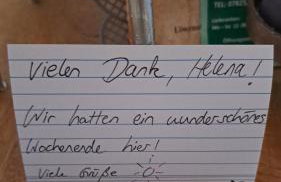 TEL: 0782
Vielen Dank, Helena!
Wir hatten ein wunderschönes
Wochenende hier!
Viele Grüße